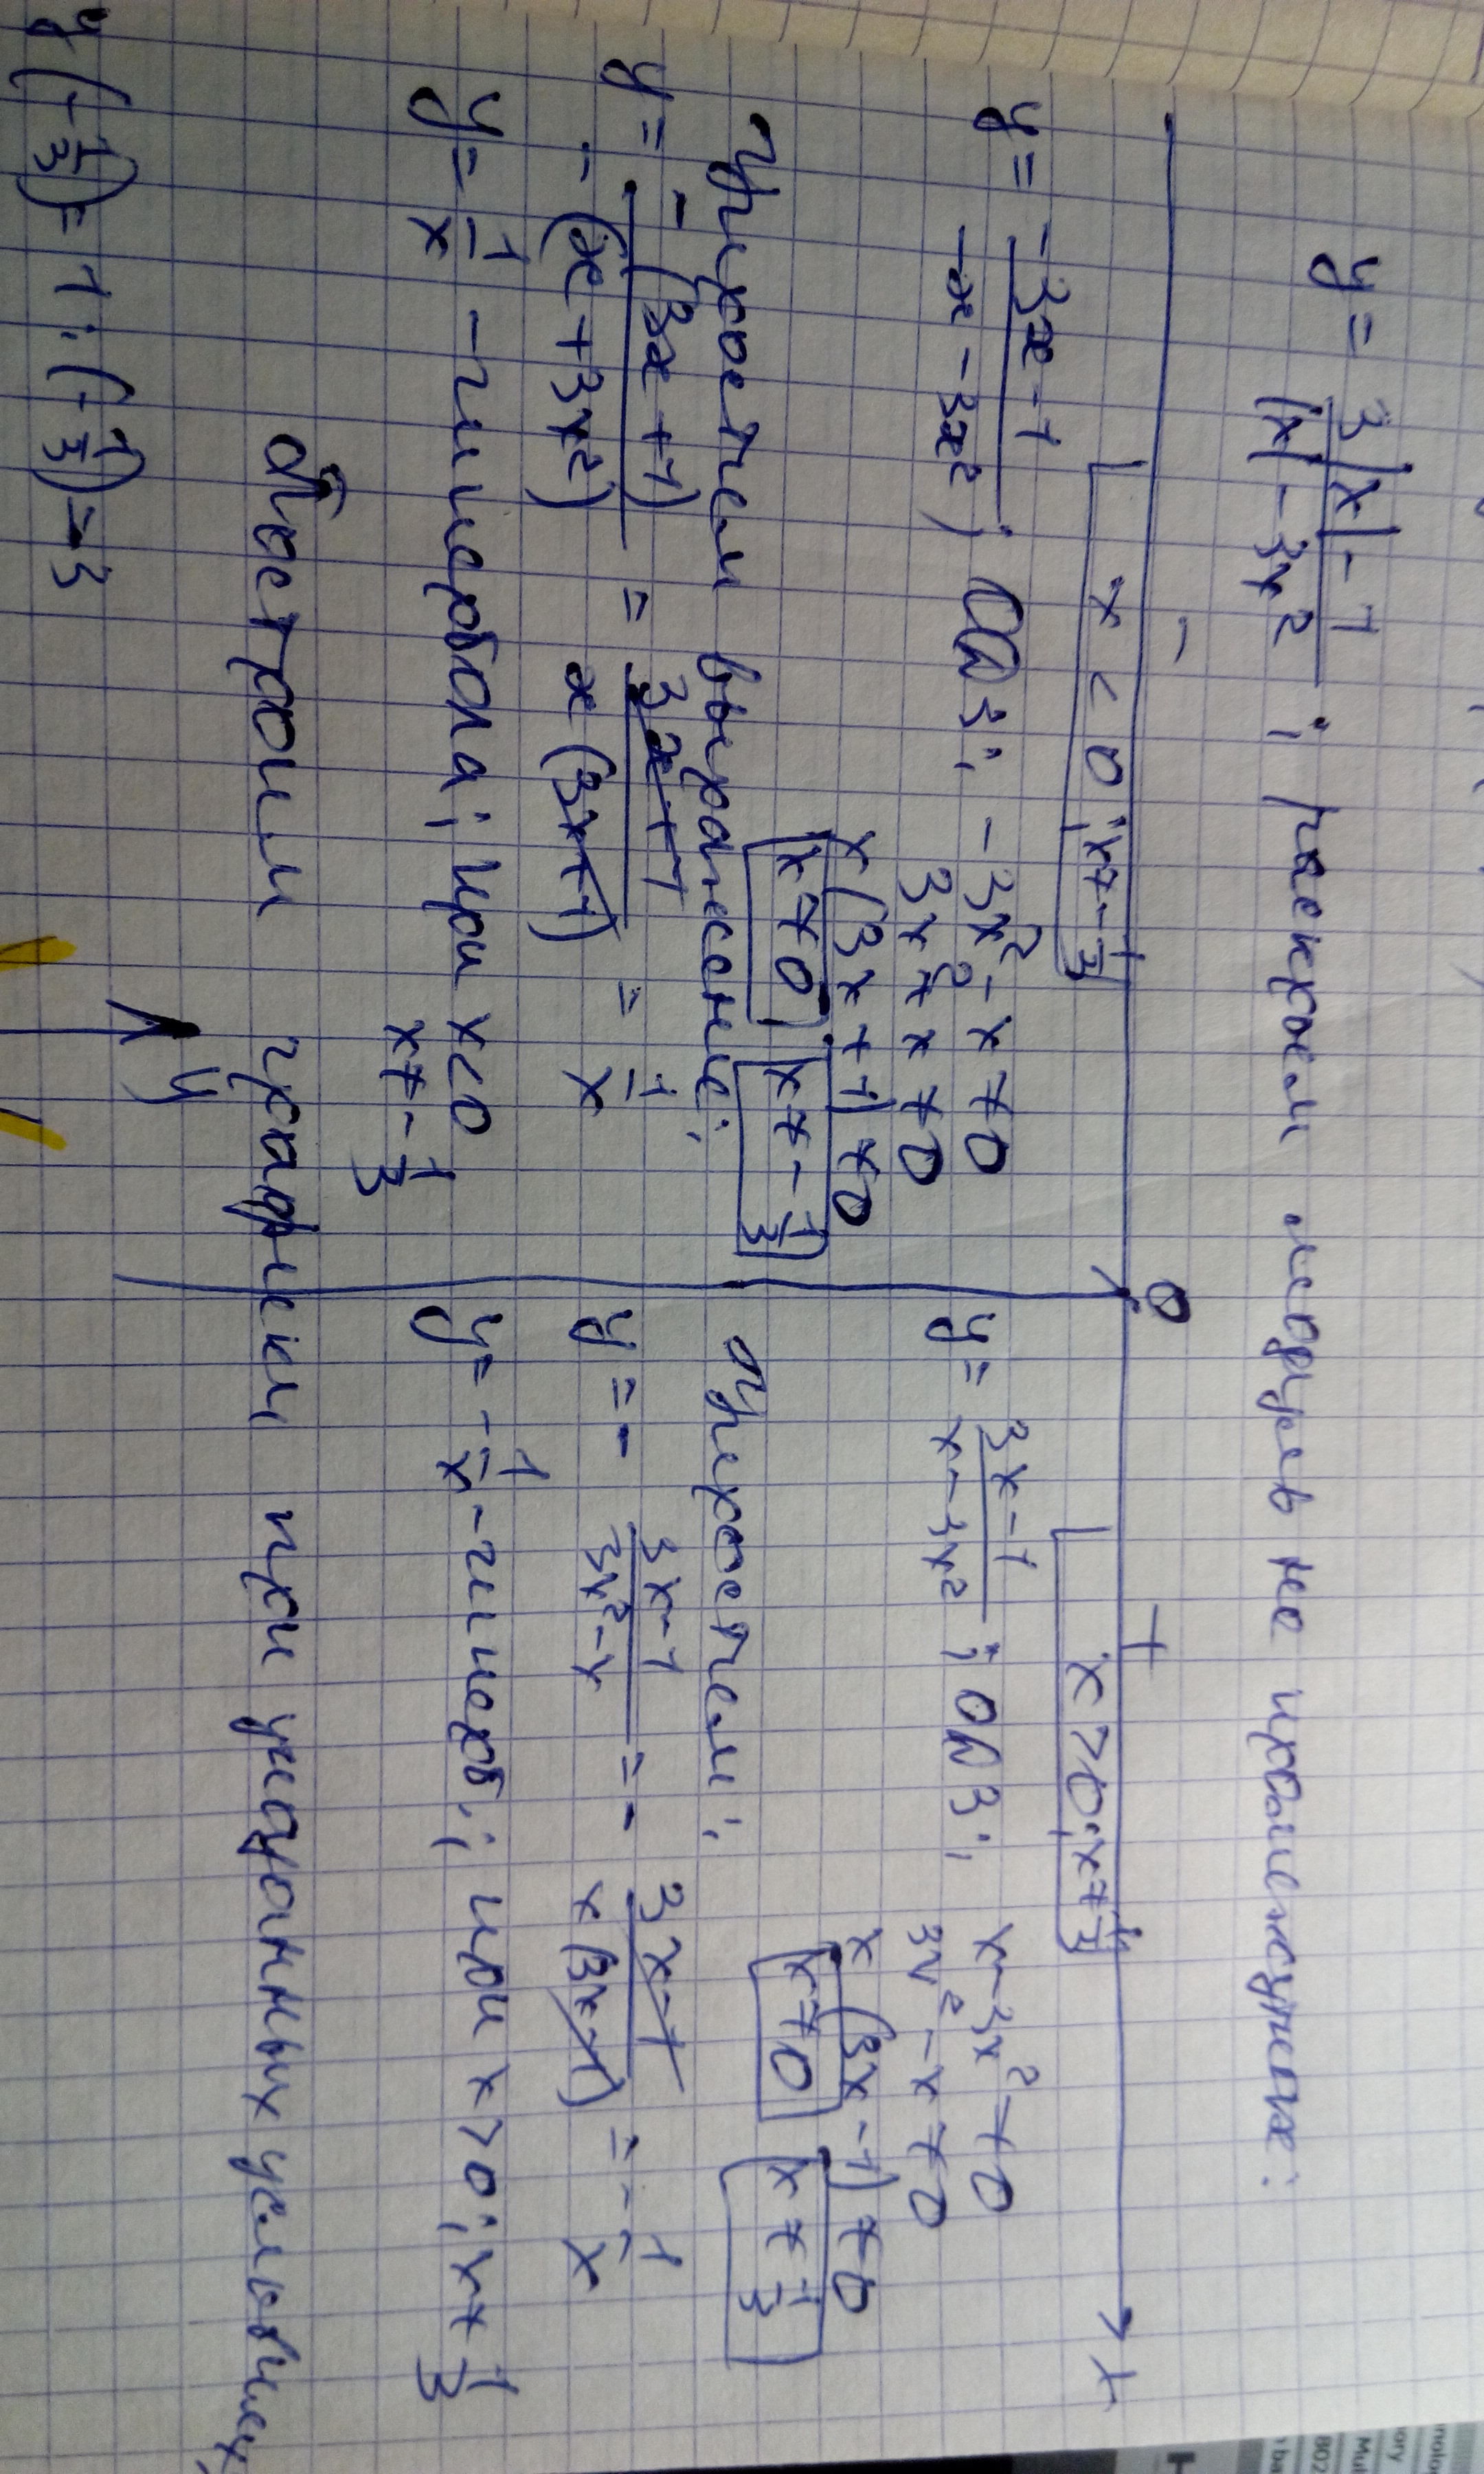 y = \frac{3|x|-1}{|x|-3x^2} ; раскроем модуль на промежутках:
- 0 + x
x < 0; x ≠ -\frac{1}{3}
x > 0; x ≠ \frac{1}{3}
y = \frac{-3x-1}{-x-3x^2} ; ОДЗ: -3x^2 - x ≠ 0
3x^2 + x ≠ 0
x(3x+1) ≠ 0
x ≠ 0; x ≠ -\frac{1}{3}
Упростим выражение:
y = \frac{-(3x+1)}{-(x+3x^2)} = \frac{3x+1}{x(3x+1)} = \frac{1}{x}
y = \frac{1}{x} - гипербола; при x<0
x ≠ -\frac{1}{3}
y = \frac{3x-1}{x-3x^2} ; ОДЗ: x - 3x^2 ≠ 0
3x^2 - x ≠ 0
x(3x-1) ≠ 0
x ≠ 0; x ≠ \frac{1}{3}
Упростим:
y = - \frac{3x-1}{3x^2-x} = - \frac{3x-1}{x(3x-1)} = - \frac{1}{x}
y = -\frac{1}{x} - гиперб.; при x>0; x ≠ \frac{1}{3}
Построим график при указанных условиях
y
y(-\frac{1}{3}) = 1:(-\frac{1}{3}) = -3